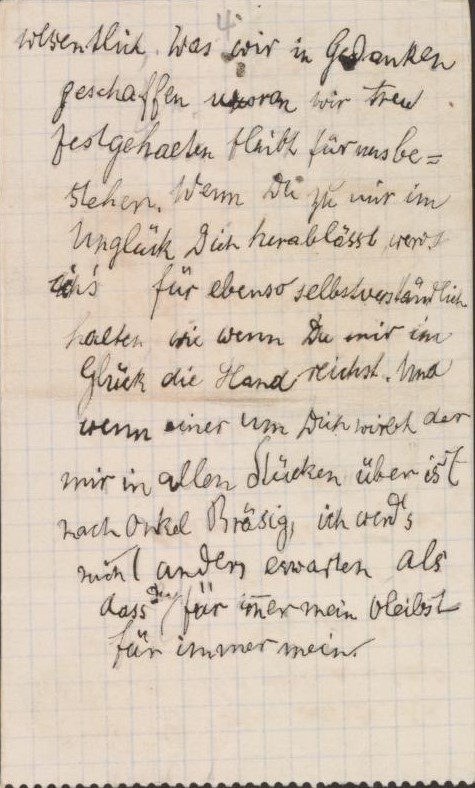 4
wesentlich. Was wir in Gedanken
geschaffen woran wir treu
festgehalten bleibt für uns be=
stehen. Wenn Du zu mir im
Unglück Dich herablässt, werd
ich's für ebenso selbstverständlich
halten wie wenn Du mir im
Glück die Hand reichst. Und
wenn einer um Dich wirbt der
mir in allen Stücken über ist
nach Onkel Bräsig, ich werd's
nicht anders erwarten als
dass Du für immer mein bleibst
für immer mein.